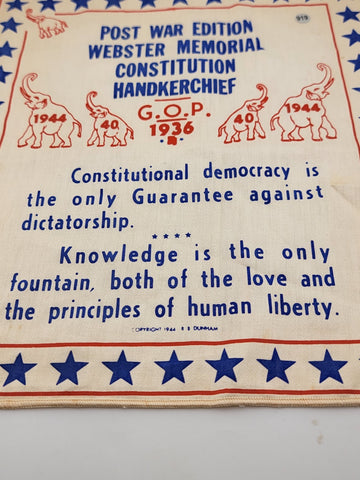 POST WAR EDITION
919
WEBSTER MEMORIAL
CONSTITUTION
HANDKERCHIEF
G.O.P.
1944 40 1936 40 1944
Constitutional democracy is
the only Guarantee against
dictatorship.
Knowledge is the only
fountain, both of the love and
the principles of human liberty.
COPYRIGHT 1944 R B DUNHAM